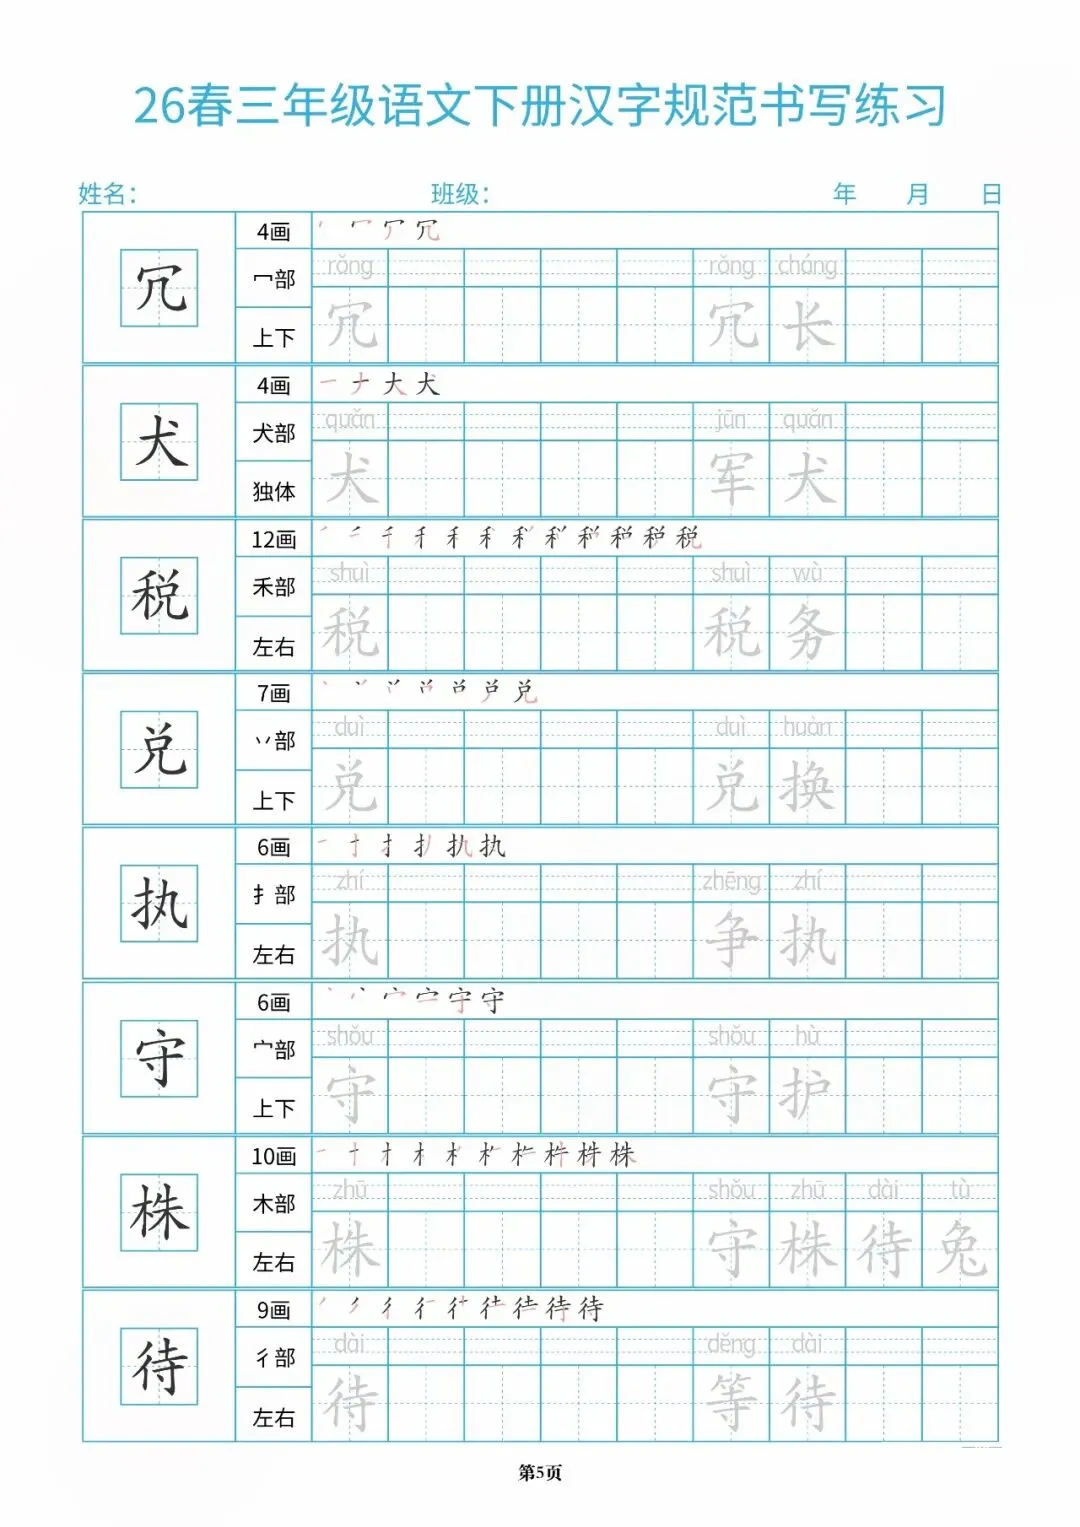 26春三年级语文下册汉字规范书写练习
姓名： 班级： 年 月 日
冗 4画
冖部 rǒng rǒng cháng
上下 冗 冗 长
犬 4画 一 ナ 大 犬
犬部 quǎn jūn quǎn
独体 犬 军 犬
税 12画
禾部 shuì shuì wù
左右 税 税 务
兑 7画
丷部 duì duì huàn
上下 兑 兑 换
执 6画
扌部 zhí zhēng zhí
左右 执 争 执
守 6画
宀部 shǒu shǒu hù
上下 守 守 护
株 10画
木部 zhū shǒu zhū dài tù
左右 株 守 株 待 兔
待 9画
彳部 dài děng dài
左右 待 等 待
第5页